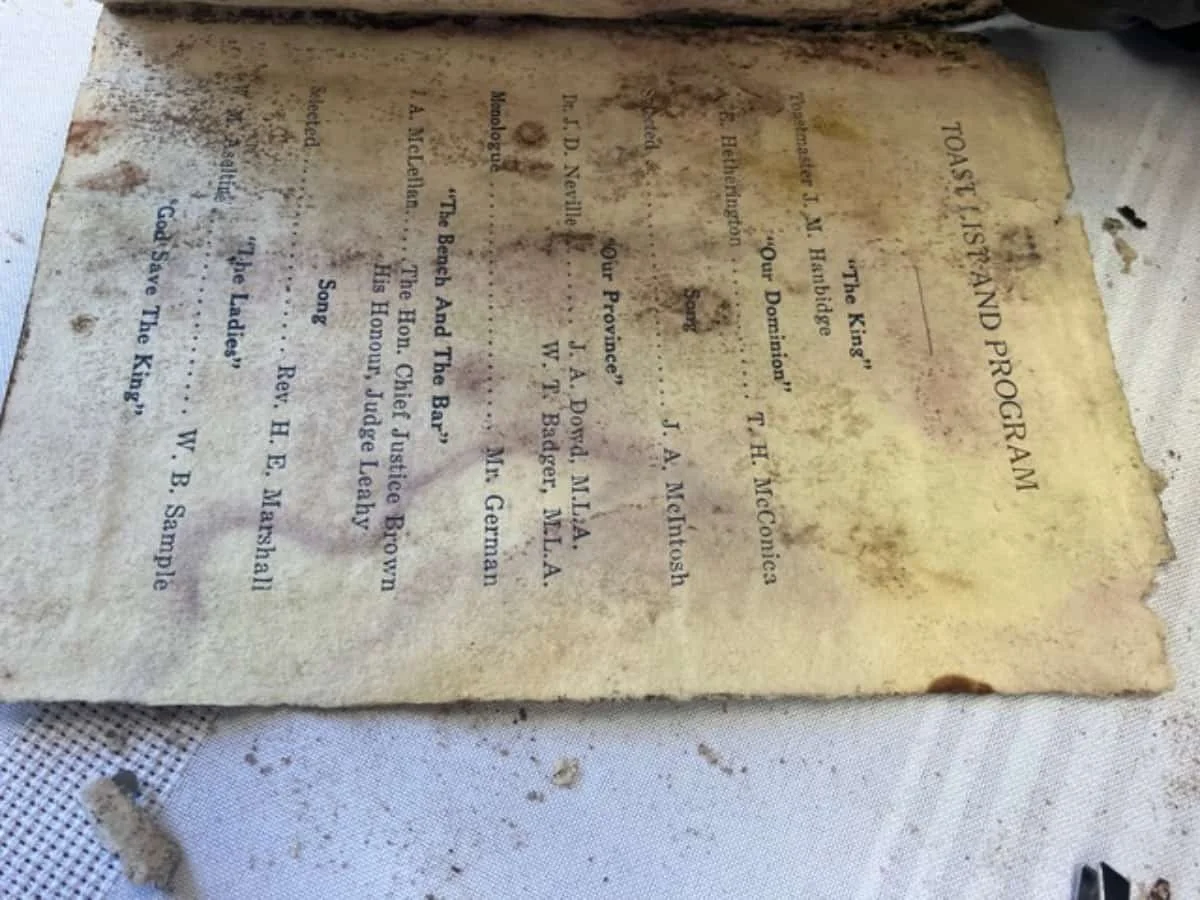 TOAST LIST AND PROGRAM
"The King"
Toastmaster J. M. Hanbidge
"Our Dominion"
Hetherington .......... T. H. McConica
Song
Selected .......... J. A. McIntosh
"Our Province"
Dr. J. D. Neville ....... J. A. Dowd, M.L.A.
W. T. Badger, M.L.A.
Monologue .......... Mr. German
"The Bench And The Bar"
J. A. McLellan .... The Hon. Chief Justice Brown
His Honour, Judge Leahy
Song
Selected .......... Rev. H. E. Marshall
"The Ladies"
.......... W. B. Sample
"God Save The King"